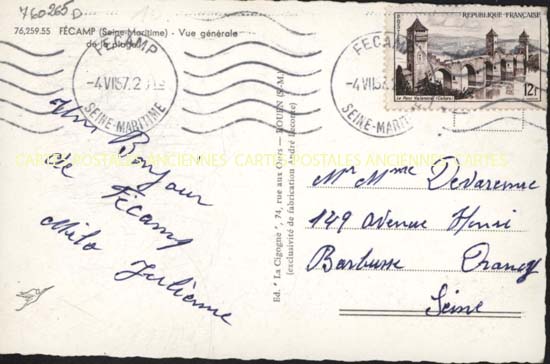 760265D
76,259.55 FÉCAMP (Seine-Maritime) - Vue générale
de la plage
FÉCAMP
-4 VII 57
SEINE-MARITIME
FÉCAMP
-4 VII 57
SEINE-MARITIME
POSTES
REPUBLIQUE FRANÇAISE
Le Pont Valentré (Cahors)
12F
CARTES POSTALES ANCIENNES CARTES POSTALES ANCIENNES CARTES
Un Bonjour
de Fécamp
Milo Julienne
Ed. "La Cigogne", 74, rue aux Ours — ROUEN (S.-M.)
(exclusivité de fabrication André Leconte)
Mr Mme Devarenne
149 avenue Henri
Barbusse Drancy
Seine